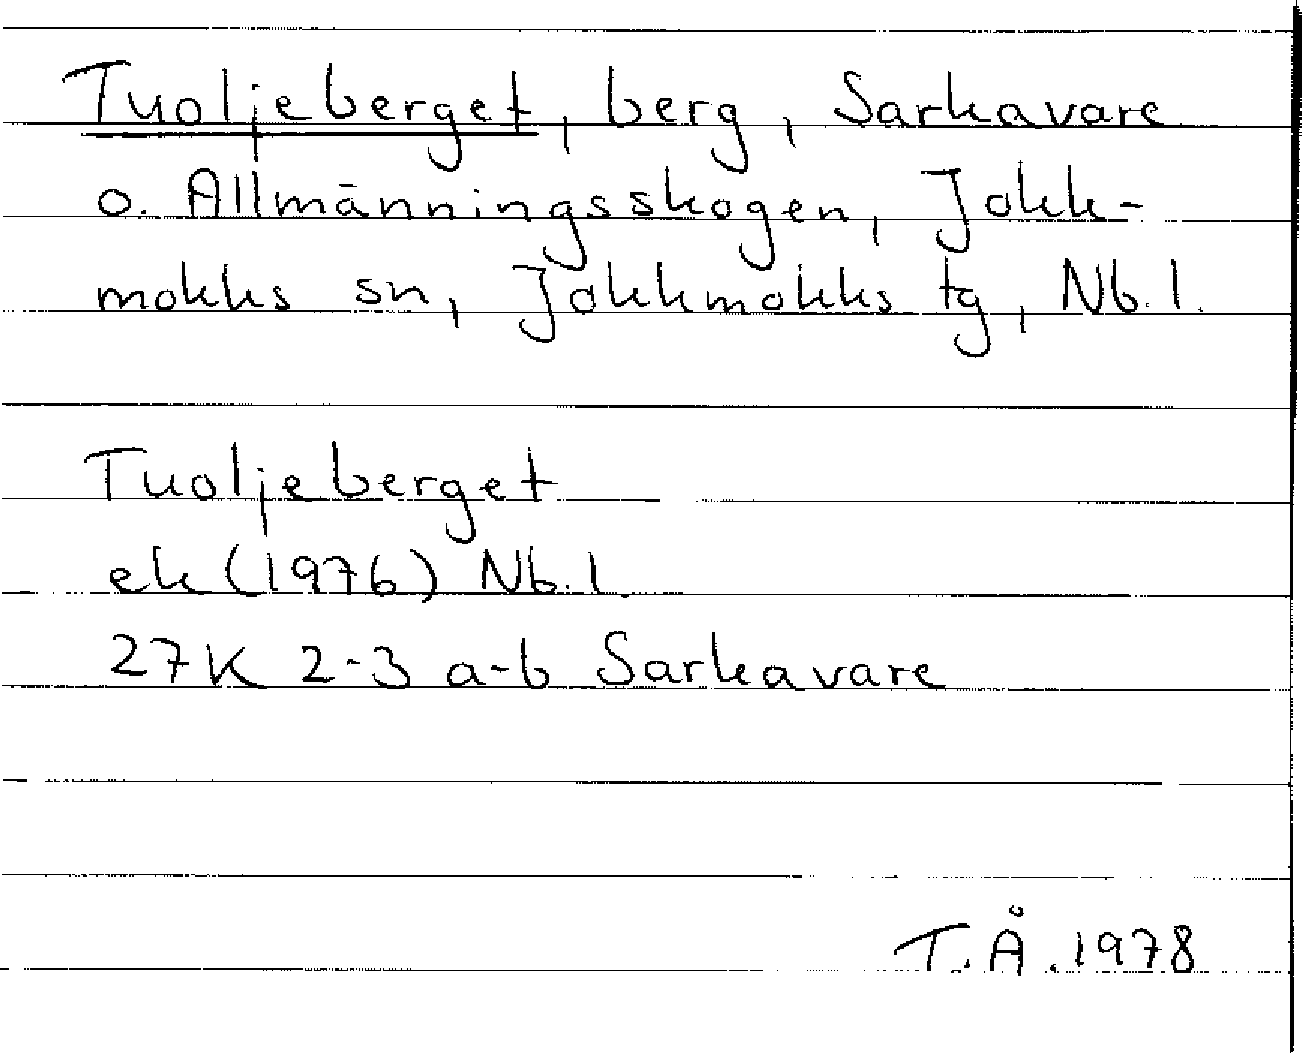 Tuoljeberget, berg, Sarkavare
o. Allmänningsskogen, Jokk-
mokks sn, Jokkmokks tg, Nb. l.
Tuoljeberget
ek (1976) Nb. l.
27K 2-3 a-b Sarkavare
T.Å. 1978